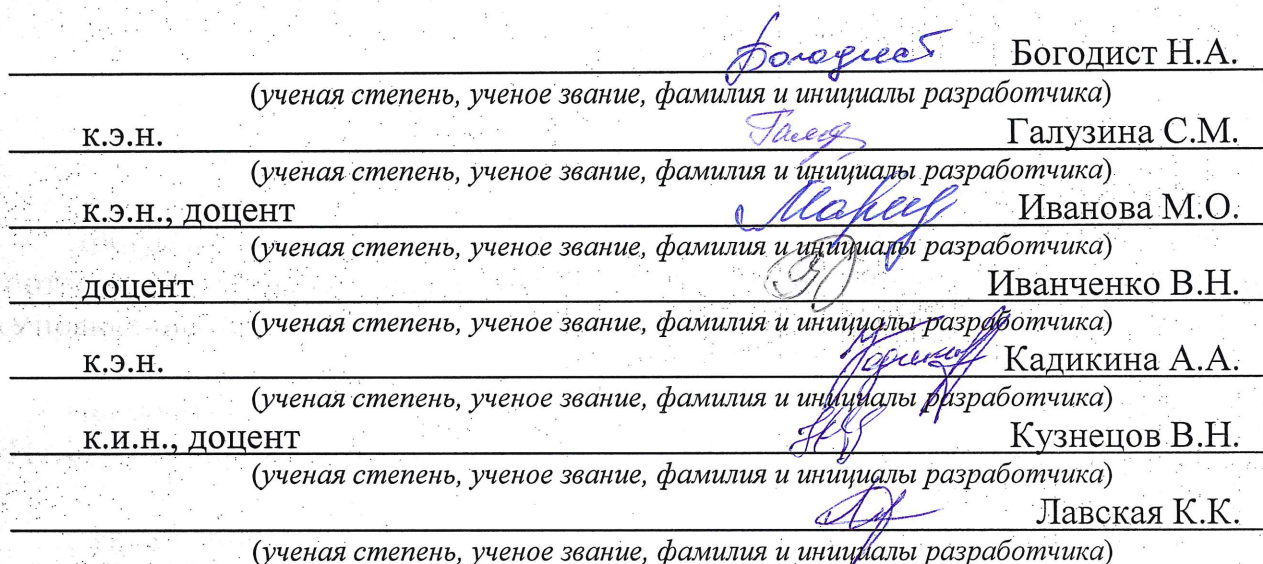 Богодист Богодист Н.А.
(ученая степень, ученое звание, фамилия и инициалы разработчика)
к.э.н. Галузина С.М.
(ученая степень, ученое звание, фамилия и инициалы разработчика)
к.э.н., доцент Иванова М.О.
(ученая степень, ученое звание, фамилия и инициалы разработчика)
доцент Иванченко В.Н.
(ученая степень, ученое звание, фамилия и инициалы разработчика)
к.э.н. Кадикина А.А.
(ученая степень, ученое звание, фамилия и инициалы разработчика)
к.и.н., доцент Кузнецов В.Н.
(ученая степень, ученое звание, фамилия и инициалы разработчика)
Лавская К.К.
(ученая степень, ученое звание, фамилия и инициалы разработчика)